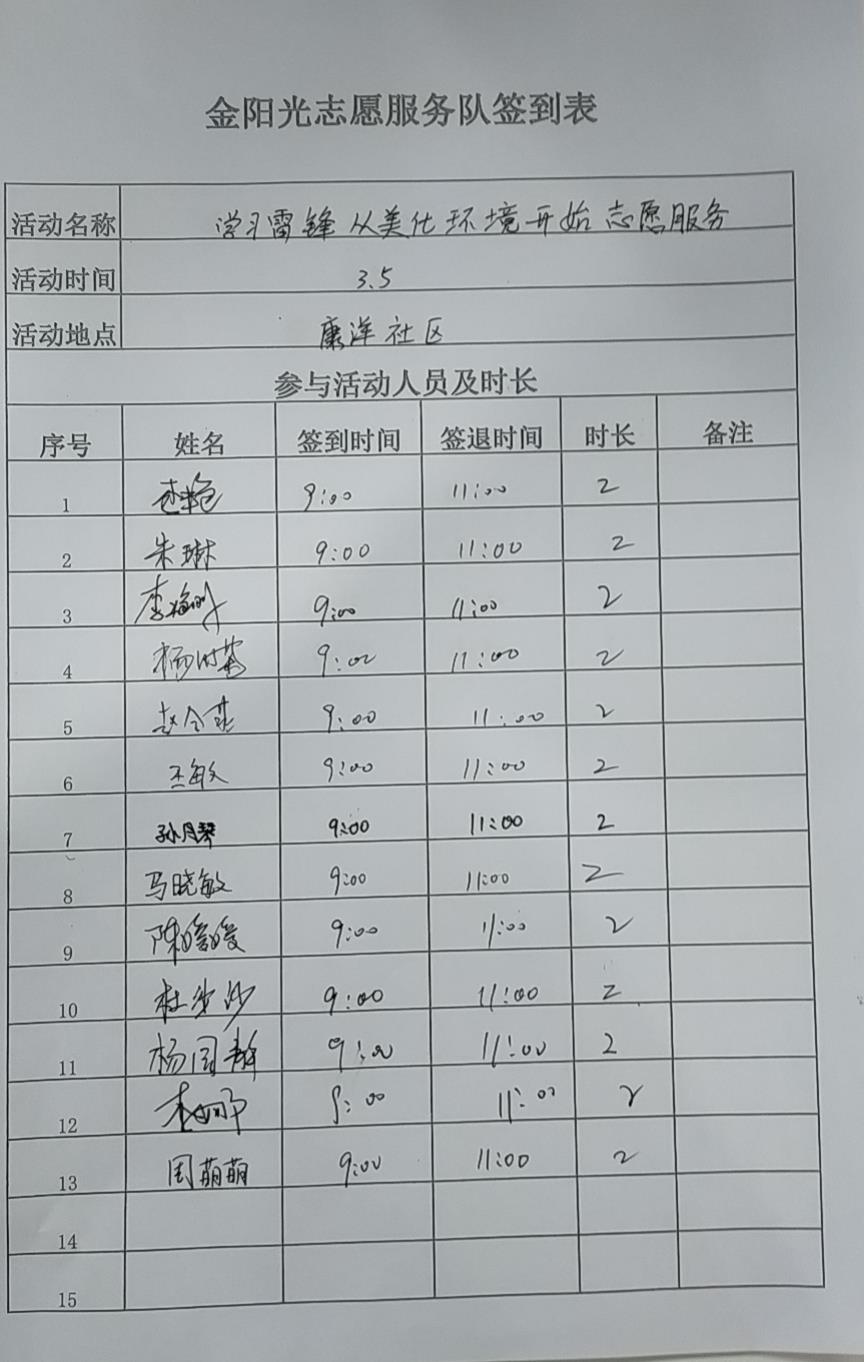 金阳光志愿服务队签到表
活动名称 学习雷锋 从美化环境开始 志愿服务
活动时间 3.5
活动地点 康洋社区
参与活动人员及时长
序号 姓名 签到时间 签退时间 时长 备注
1 9:00 11:00 2
2 朱琳 9:00 11:00 2
3 9:00 11:00 2
4 9:00 11:00 2
5 9:00 11:00 2
6 王敏 9:00 11:00 2
7 孙月琴 9:00 11:00 2
8 马晓敏 9:00 11:00 2
9 陈媛媛 9:00 11:00 2
10 杜沙沙 9:00 11:00 2
11 9:00 11:00 2
12 9:00 11:00 2
13 周萌萌 9:00 11:00 2
14
15